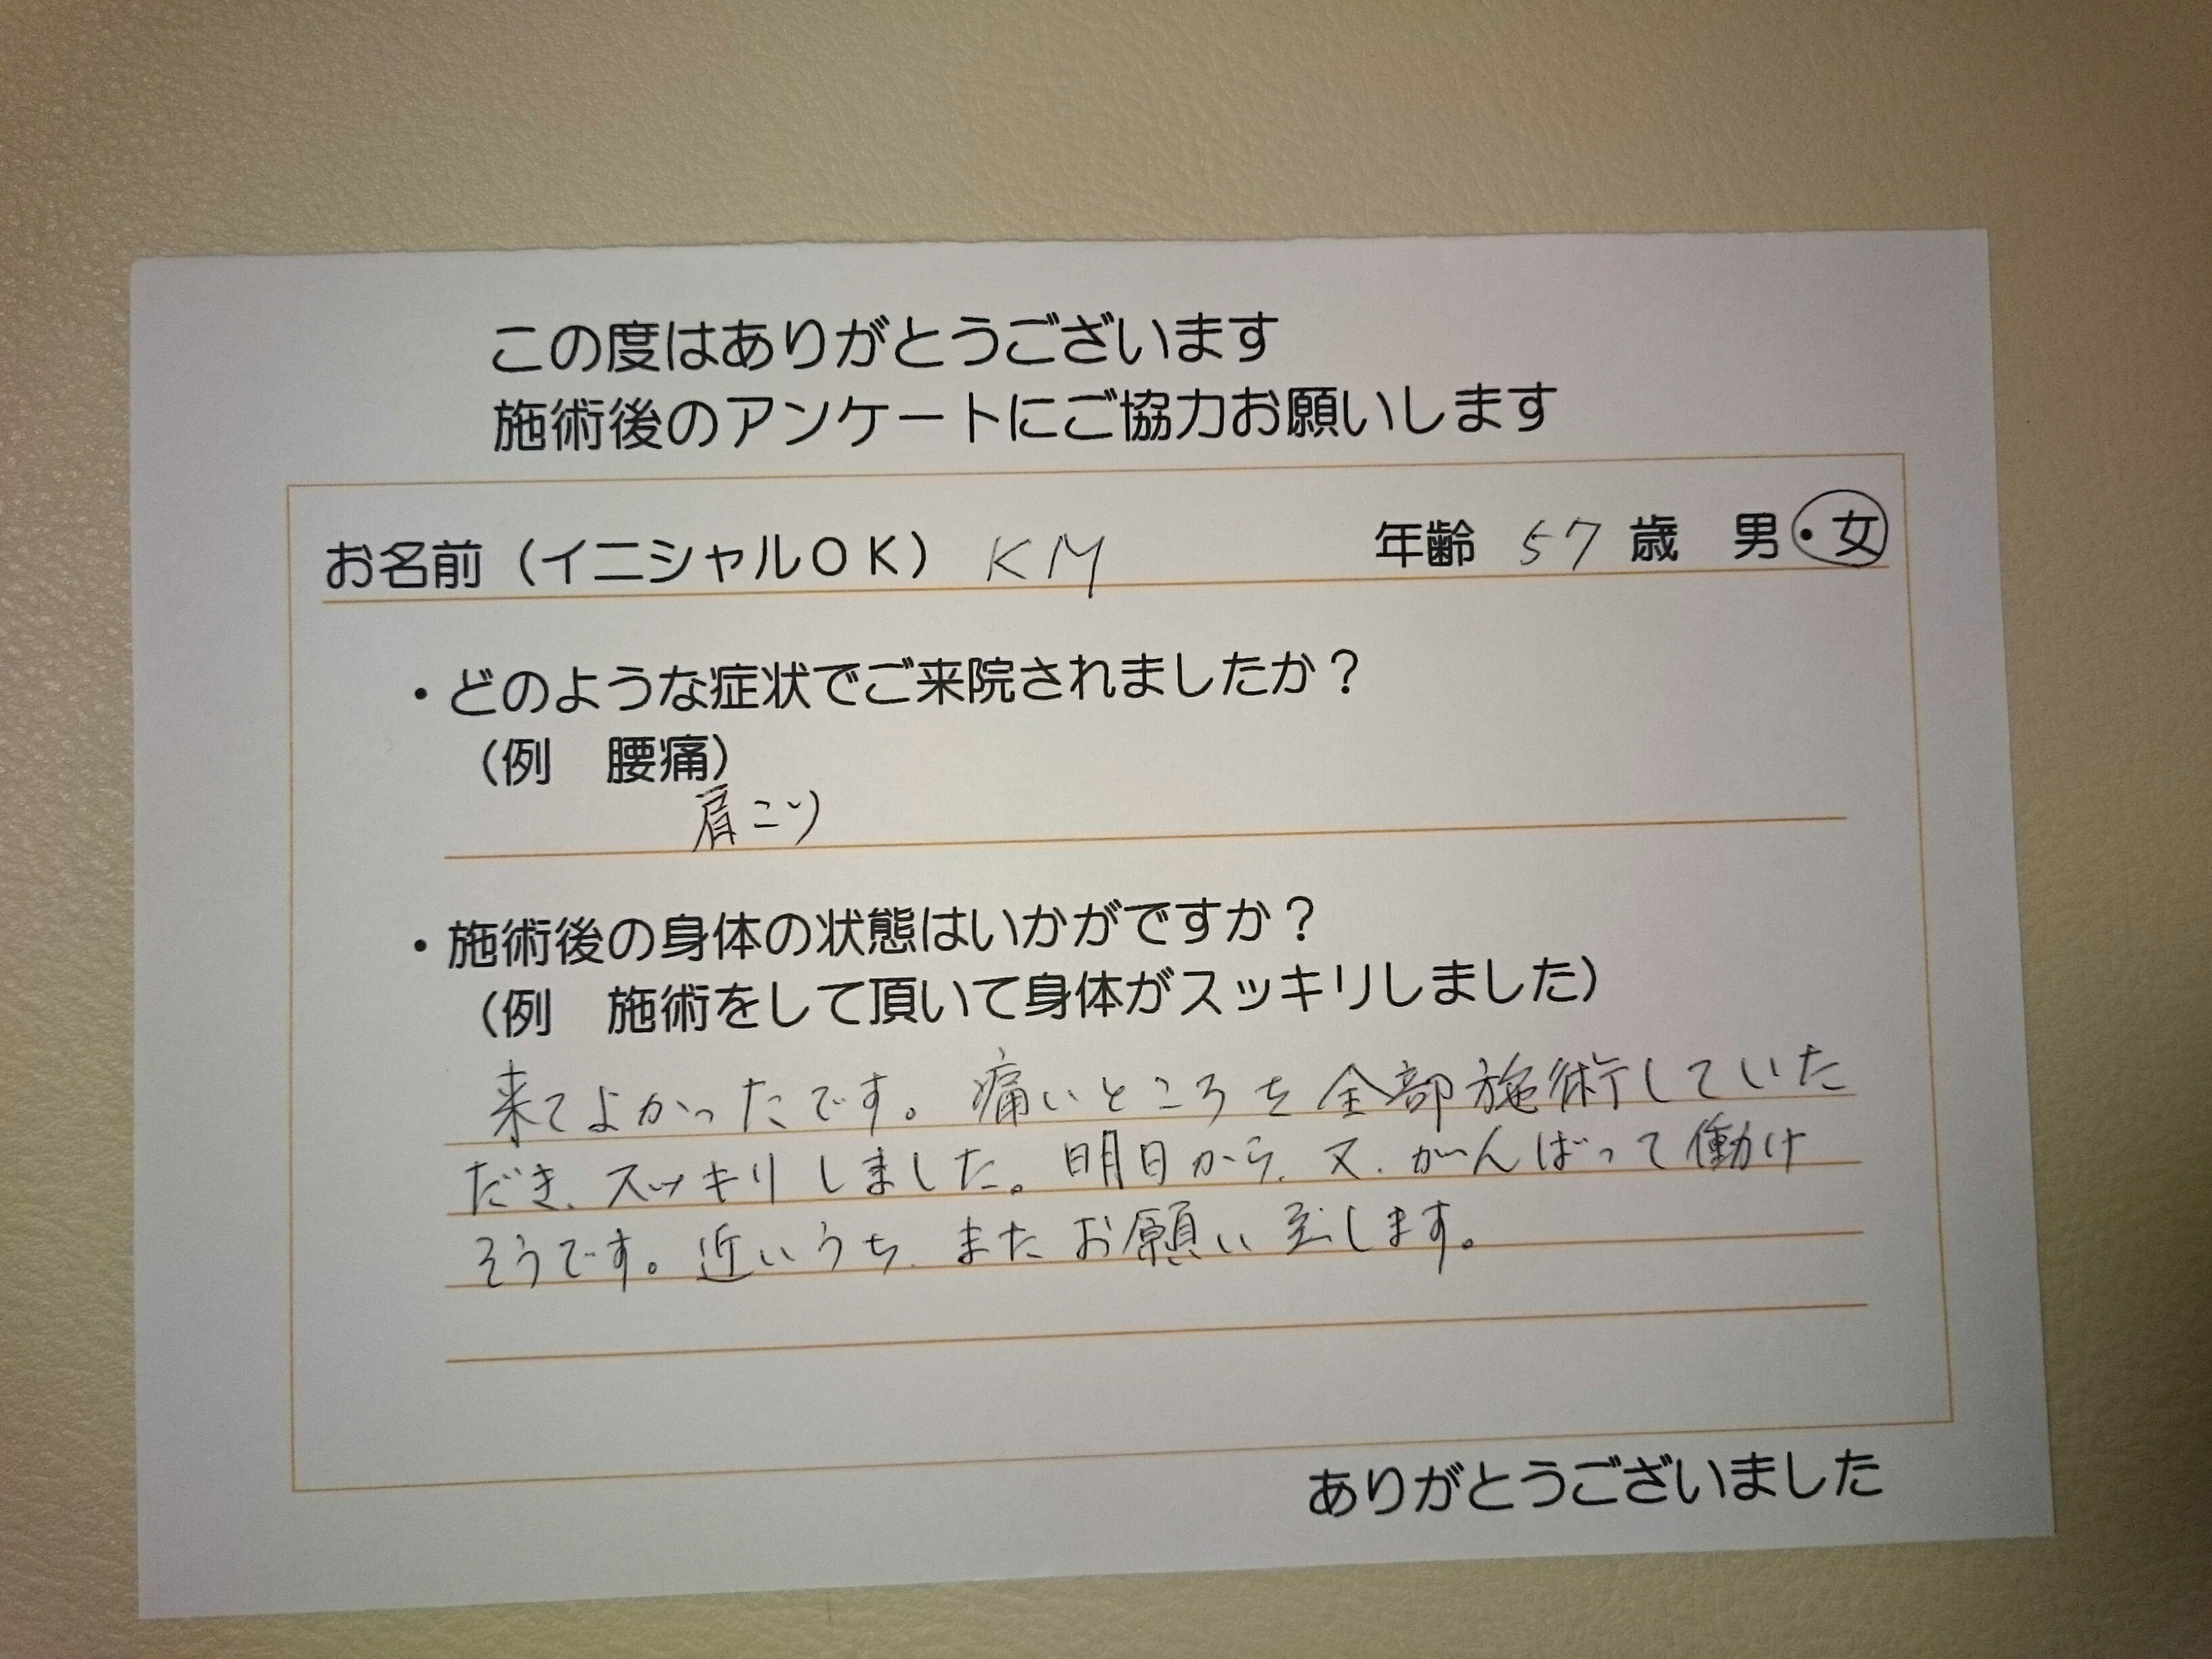 この度はありがとうございます
施術後のアンケートにご協力お願いします
お名前（イニシャルOK） KM 年齢 57 歳 男・女
・どのような症状でご来院されましたか？
（例　腰痛）
肩こり
・施術後の身体の状態はいかがですか？
（例　施術をして頂いて身体がスッキリしました）
来てよかったです。痛いところを全部施術していた
だき、スッキリしました。明日から、又、がんばって働け
そうです。近いうち、またお願い致します。
ありがとうございました